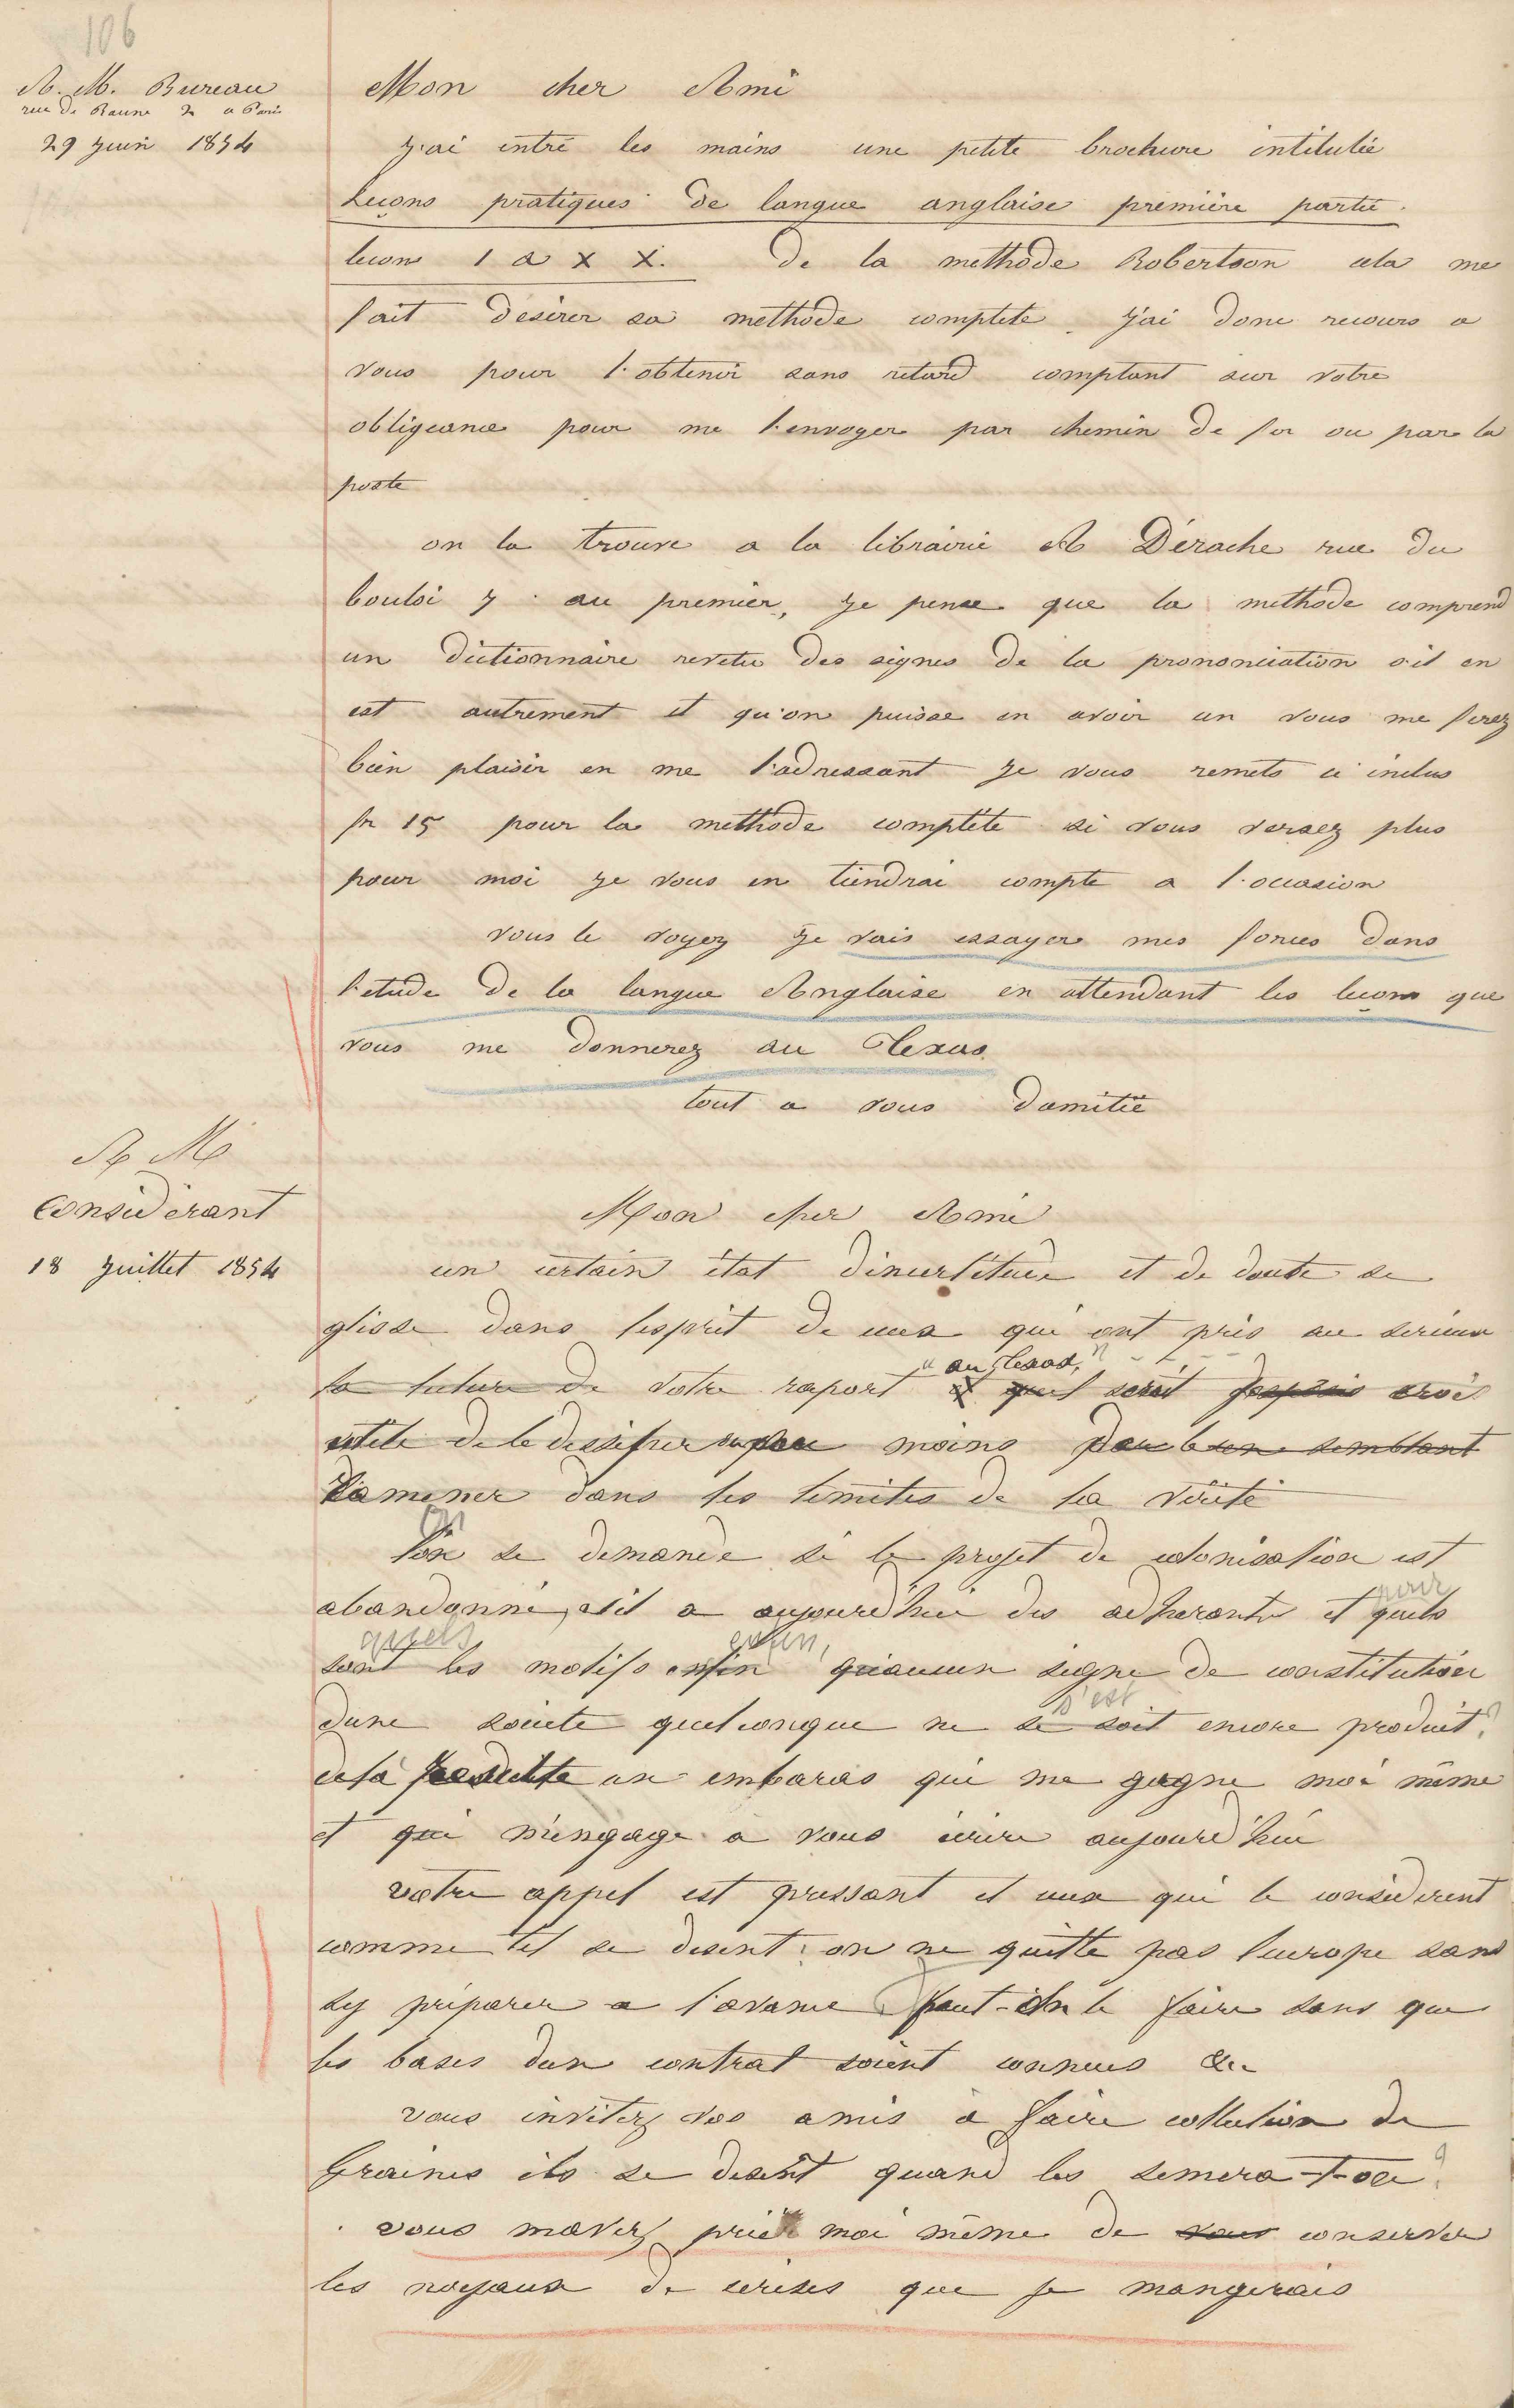 106
A. M. Bureau
rue de Beaune 2 a Paris
29 juin 1854
Mon cher Ami
j'ai entre les mains une petite brochure intitulée
Leçons pratiques de langue anglaise première partie.
leçons 1 a X X. de la methode Robertson cela me
fait desirer sa methode complete. j'ai donc recours a
vous pour l'obtenir sans retard comptant sur votre
obligeance pour me l'envoyer par chemin de fer ou par la
poste
on la trouve a la librairie A Dérache rue du
bouloi 7 au premier, je pense que la methode comprend
un dictionnaire revetu des signes de la prononciation s'il en
est autrement et qu'on puisse en avoir un vous me ferez
bien plaisir en me l'adressant je vous remets ci inclus
fr 15 pour la methode complète si vous versez plus
pour moi je vous en tiendrai compte a l'occasion
vous le voyez je vais essayer mes forces dans
l'etude de la langue Anglaise en attendant les leçons que
vous me donnerez au Texas
tout a vous damitié
A M.
Considérant
18 juillet 1854
Mon cher Ami
un certain état dincertitude et de doute se
glisse dans lesprit de ceux qui ont pris au serieux
la lecture de votre raport "au Texas,"
et quil serait crois
utile de le dissiper moins par bien semblant
Damener dans les limites de la vérité
lon se demande si le projet de colonisation est
abandonné, sil a aujourd'hui des adherants et quels
pour
quels
sont les motifs enfin quaucun signe de constitution
enfin,
dune societe quelconque ne se soit encore produit?
s'est
cela un embaras qui me gagne moi même
et qui m'engage a vous écrire aujourd'hui
votre appel est pressant et ceux qui le considerent
comme tel se disent: on ne quitte pas leurope sans
sy préparer a l'avance peut-on le faire sans que
les bases dun contrat soient connues &c
vous invitez vos amis à faire collection de
Graines ils se disent quand les semera-t-on?
vous mavez prié moi même de vous conserver
les noyaux de cerises que je mangerais